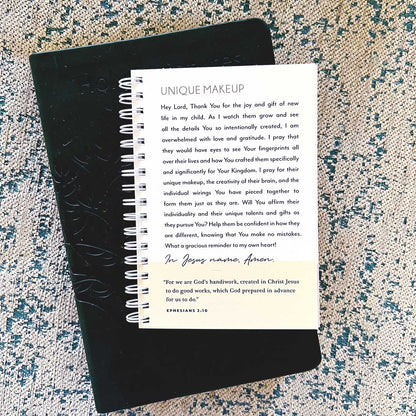 UNIQUE MAKEUP
Hey Lord, Thank You for the joy and gift of new
life in my child. As I watch them grow and see
all the details You so intentionally created, I am
overwhelmed with love and gratitude. I pray that
they would have eyes to see Your fingerprints all
over their lives and how You crafted them specifically
and significantly for Your Kingdom. I pray for their
unique makeup, the creativity of their brain, and the
individual wirings You have pieced together to
form them just as they are. Will You affirm their
individuality and their unique talents and gifts as
they pursue You? Help them be confident in how they
are different, knowing that You make no mistakes.
What a gracious reminder to my own heart!
In Jesus name, Amen.
"For we are God's handiwork, created in Christ Jesus
to do good works, which God prepared in advance
for us to do."
EPHESIANS 2:10